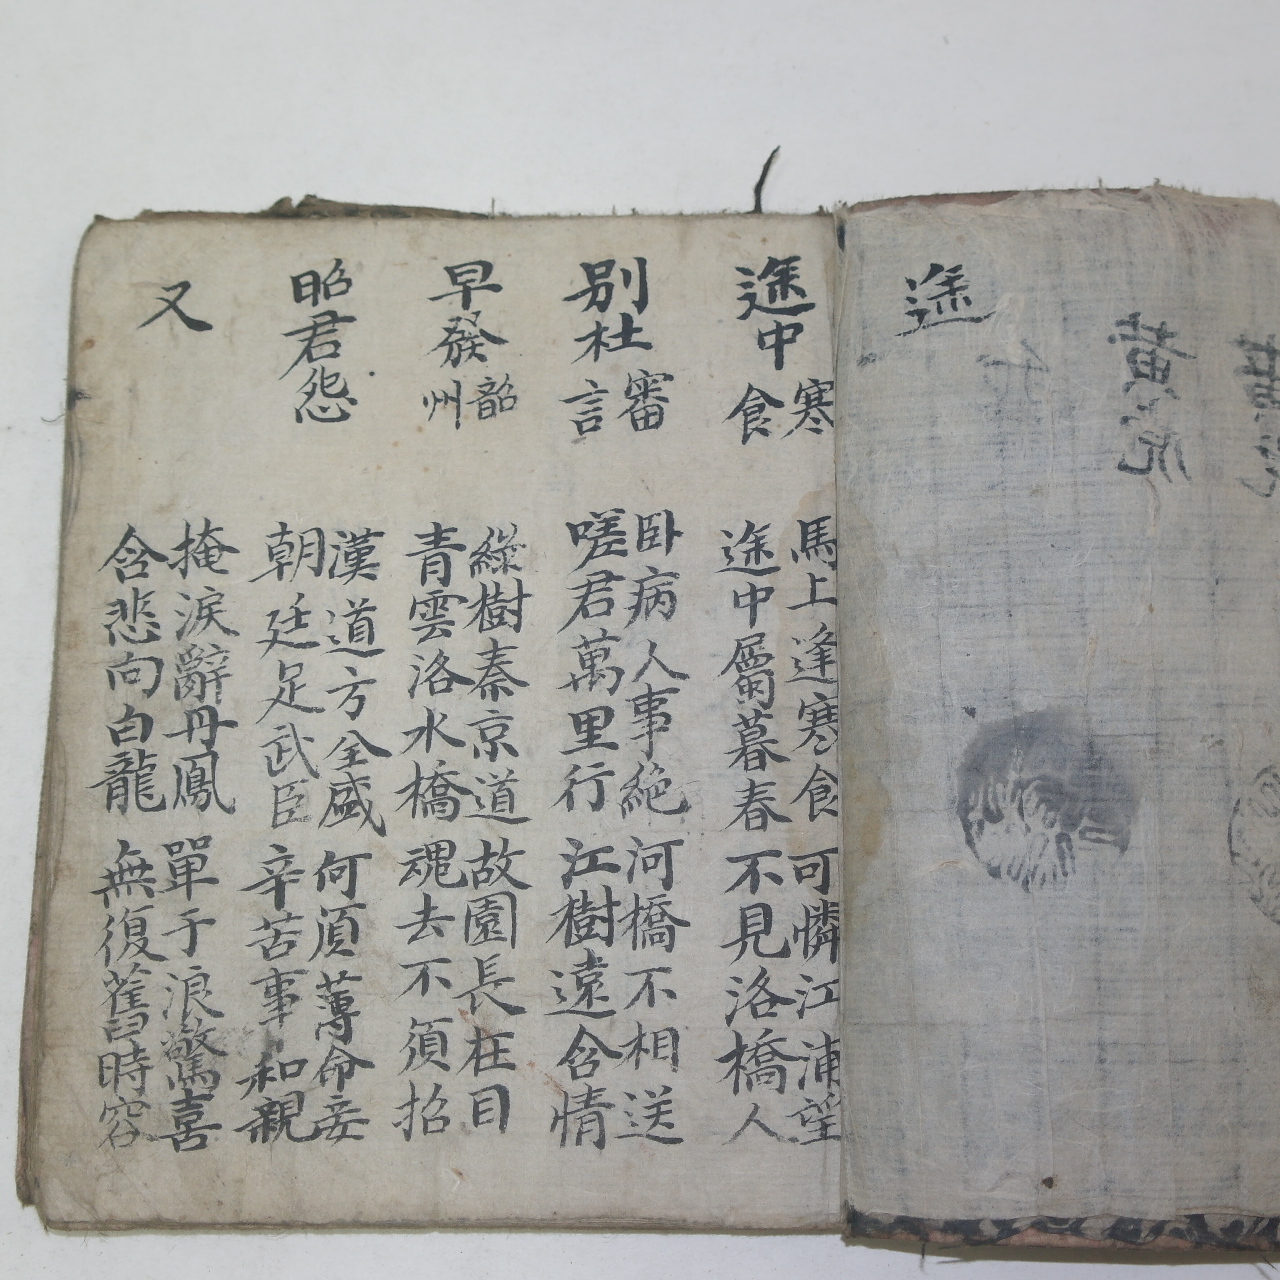 途
途中寒食
馬上逢寒食
途中屬暮春
可憐江浦望
不見洛橋人
別杜審言
卧病人事絶
嗟君萬里行
河橋不相送
江樹遠含情
早發韶州
綠樹秦京道
青雲洛水橋
故園長在目
魂去不須招
昭君怨
漢道方全盛
朝廷足武臣
何須薄命妾
辛苦事和親
又
掩淚辭丹鳳
含悲向白龍
單于浪驚喜
無復舊時容